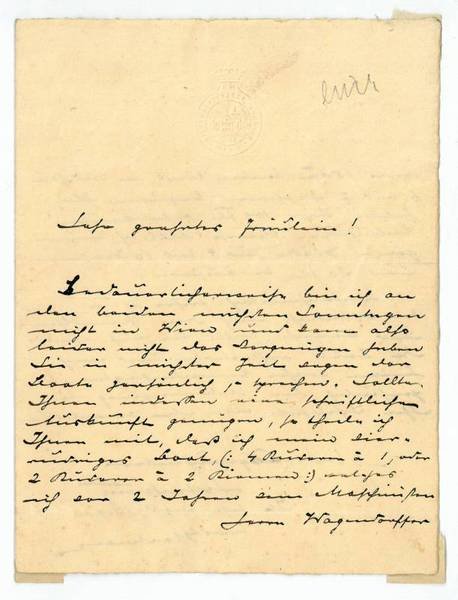 Sehr geehrtes Fräulein!
Bedauerlicherweise bin ich an
den beiden nächsten Sonntagen
nicht in Wien und kann also
leider nicht das Vergnügen haben
Sie in nächster Zeit wegen der
Boote persönlich zu sprechen. Sollte
Ihnen indessen eine schriftliche
Auskunft genügen, so theile ich
Ihnen mit, daß ich mein vier-
rudriges Boot, (: 4 Ruderer à 1, oder
2 Ruderer à 2 Riemen :) welches
ich vor 2 Jahren dem Maschinisten
Herrn Wagendorffer